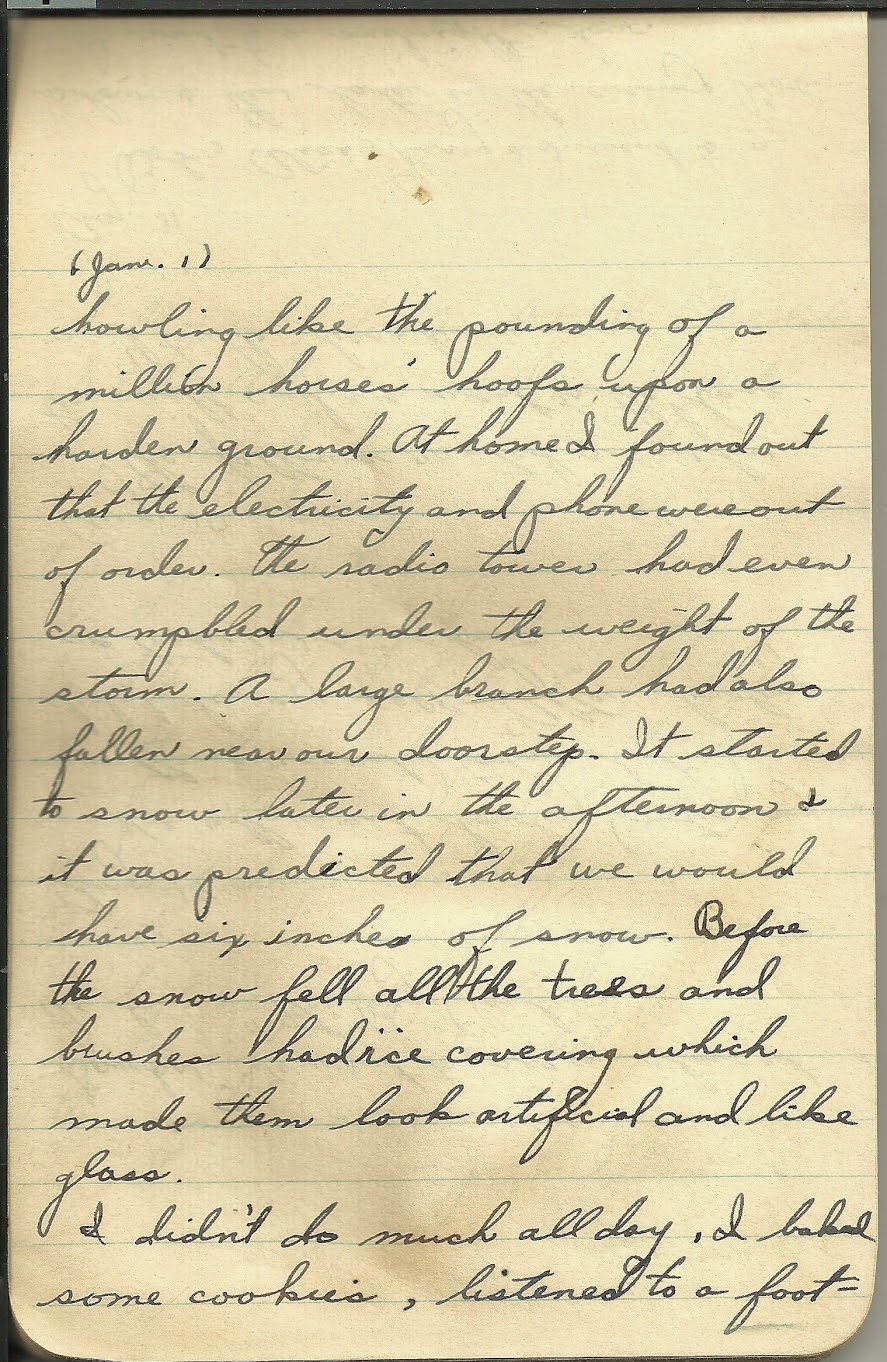 (Jan. 1)
howling like the pounding of a
million horses' hoofs upon a
harden ground. At home I found out
that the electricity and phone were out
of order. The radio tower had even
crumpbled under the weight of the
storm. A large branch had also
fallen near our doorstep. It started
to snow later in the afternoon &
it was predicted that we would
have six inches of snow. Before
the snow fell all the trees and
brushes had ice covering which
made them look artificial and like
glass.
I didn't do much all day, I baked
some cookies, listened to a foot=